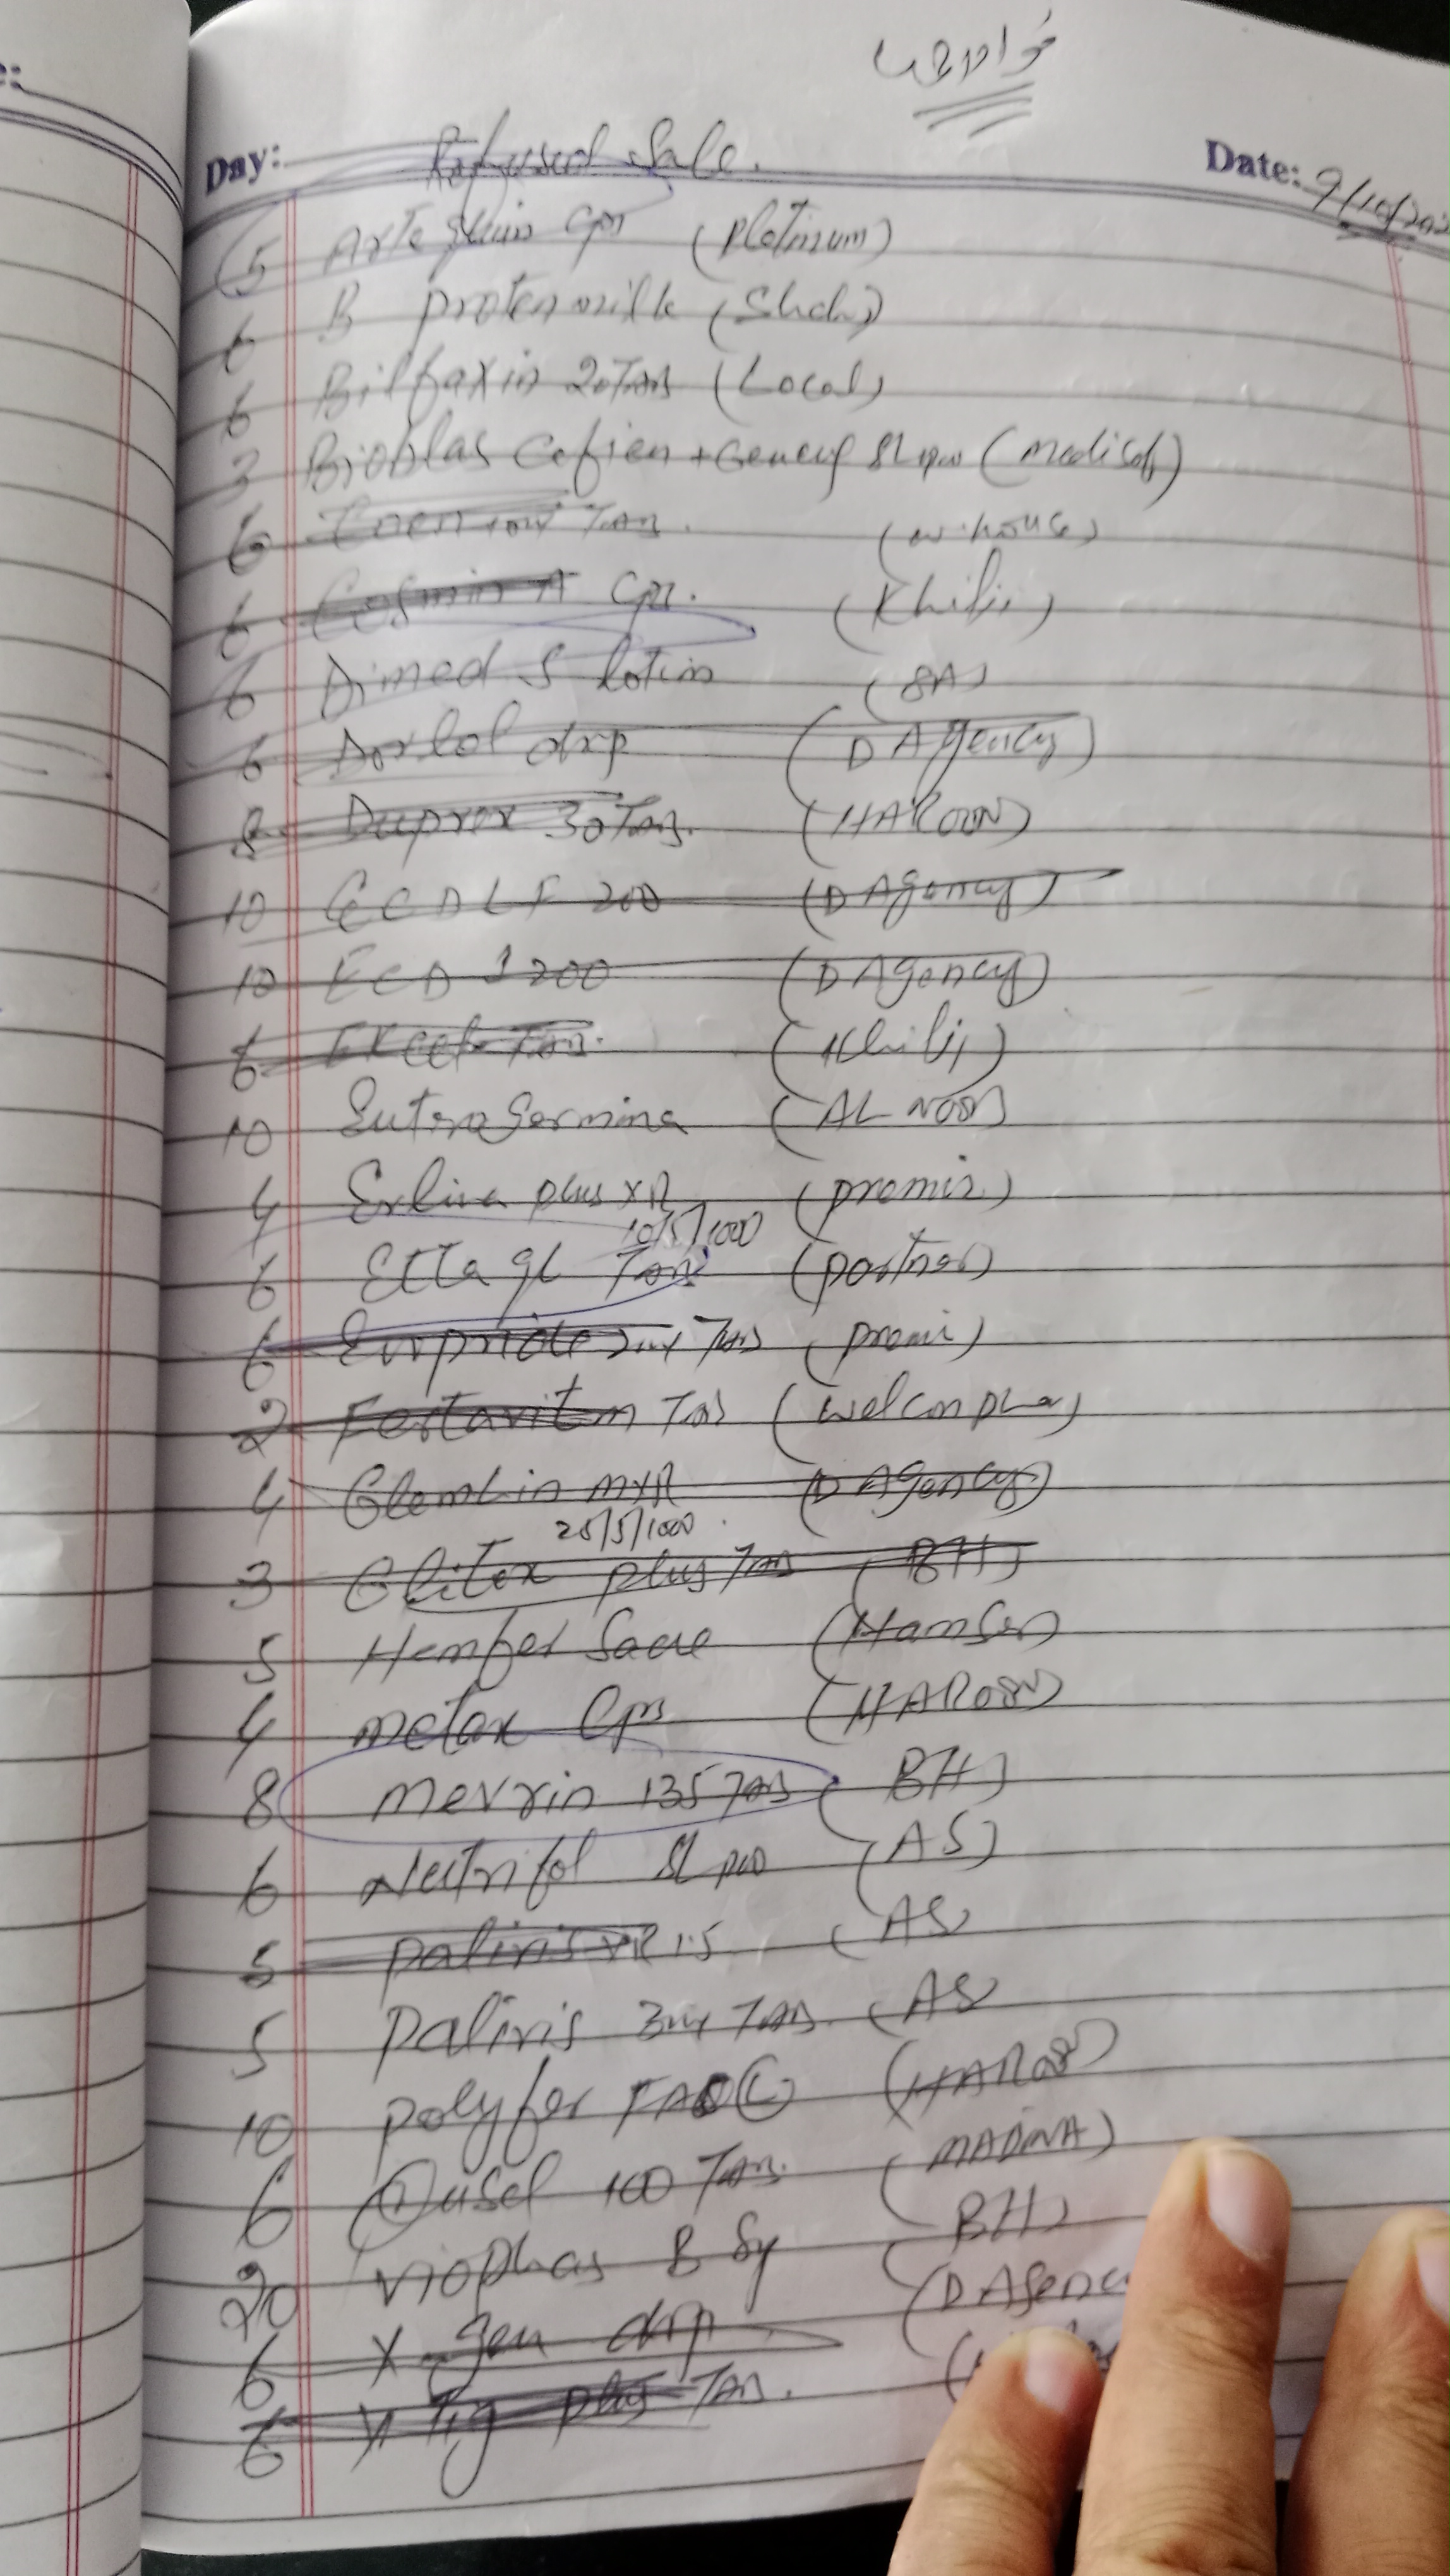 Day: Refused Sale. Date: 9/10/202
5 Arteguin Cps (Platinum)
6 B proten milk (Shah)
6 Bilfaxin 20 Tabs (Local)
3 Bioblas Cefien + (Medisof)
6 Tab. (w.house)
6 Cosmin A Cps. (Khilji)
6 Dimed S lotin (SA)
6 Dorlol drp (D Agency)
8 Duprox 30 Tabs. (HAROON)
10 C C D L F 200 (D Agency)
10 E C D 1 200 (D Agency)
6 Excel Tab. (Khilji)
10 Enterogermina (AL NOOR)
4 Erlina plus XR (promir)
10/5/1000
6 Etta gl Tab (partner)
6 Evopride 2mg Tabs (promi)
2 Fertavitem Tab (welcon pha)
4 Glemlin MXR (D Agency)
25/5/1000
3 Glitox plus Tab (BH)
5 Hemfer Sache
4 Metax Cps (HAROON)
8 Mevrin 135 Tab (BH)
6 Nutrifol (AS)
5 Paliris XR 1.5 (AS
5 Paliris 3mg Tab. (AS
10 Polyfer FAS C (HAROON)
6 Qusel 100 Tab. (MADINA)
20 Viophas B Sy (BH)
6 X gen drp (D Agenc
6 Tig plus Tab.